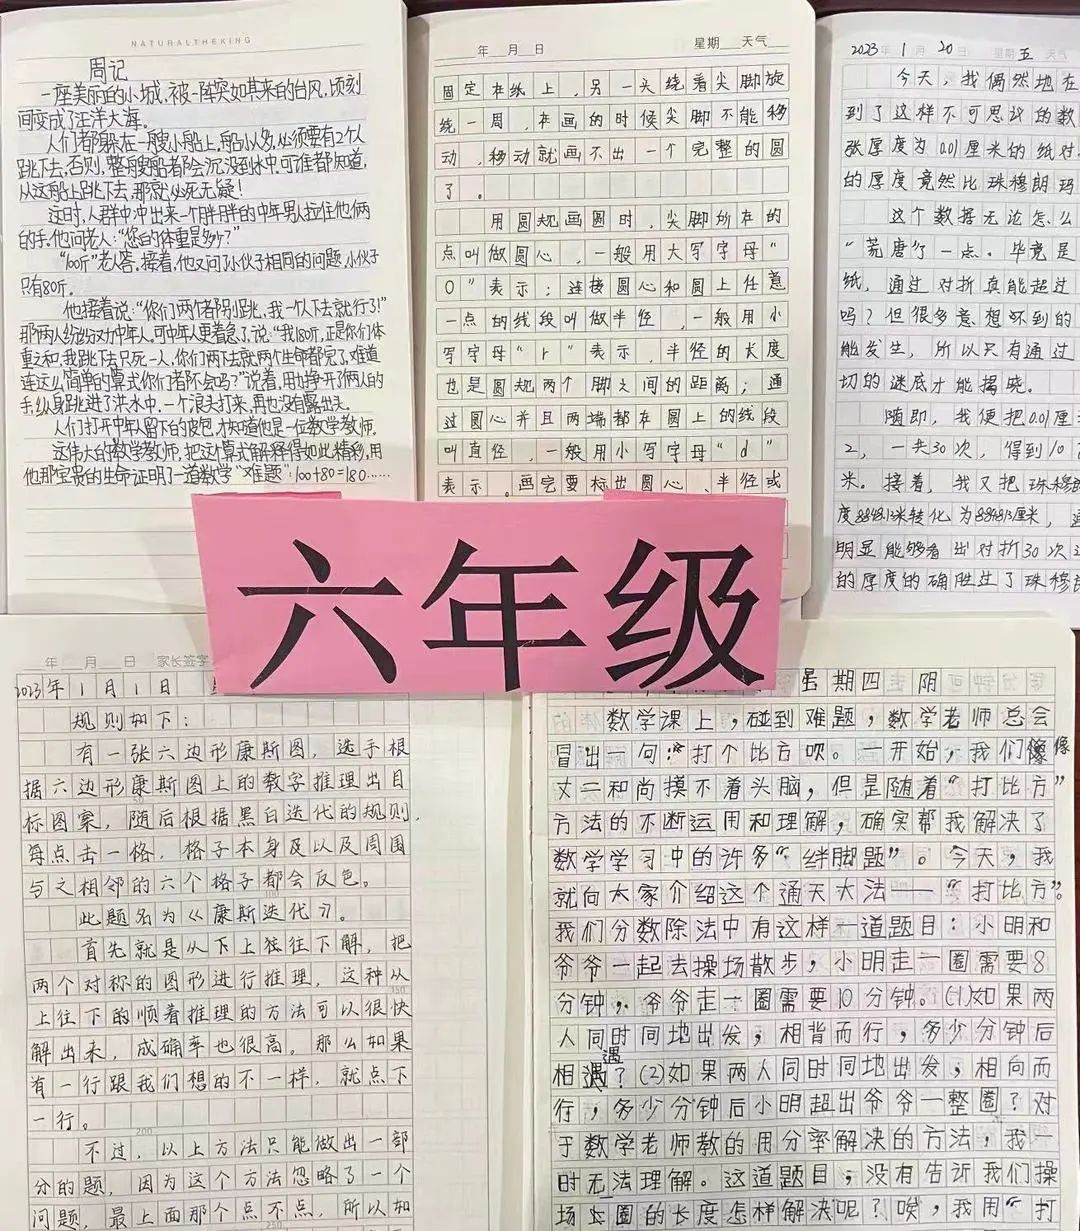 NATURALTHEKING
周记
一座美丽的小城,被一阵突如其来的台风,顷刻
间变成了汪洋大海。
人们都躲在一艘小船上,船小人多,必须要有2个人
跳下去,否则,整艘船都会沉没到水中,可谁都知道,
从这船上跳下去,那就必死无疑!
这时,人群中冲出来一个胖胖的中年男人拉住他俩
的手,他问老人:“您的体重是多少?”
“100斤”老人答,接着,他又问小伙子相同的问题,小伙子
只有80斤.
他接着说:“你们两个都别跳,我一个人下去就行了!”
那两人纷纷对中年人,可中年人更着急了,说:“我180斤,正是你们体
重之和,我跳下去只死一人,你们两下去就两个生命都完了,难道
连这么简单的算式你们都不会吗?”说着,用力挣开了俩人的
手,纵身跳进了洪水中,一个浪头打来,再也没有露出头.
人们打开中年人留下的皮包,才知道他是一位数学教师.
这伟大的数学教师,把这个算式解释得如此精彩,用
他那宝贵的生命证明了一道数学“难题”:100+80=180......
年 月 日 星期 天气
固定在纸上,另一头绕着尖脚旋
绕一周,在画的时候尖脚不能移
动,移动就画不出一个完整的圆
了。
用圆规画圆时,尖脚所在的
点叫做圆心,一般用大写字母“
O”表示;连接圆心和圆上任意
一点的线段叫做半径,一般用小
写字母“r”表示,半径的长度
也是圆规两个脚之间的距离;通
过圆心并且两端都在圆上的线段
叫直径,一般用小写字母“d”
表示。画完要标出圆心、半径或
2023年1月20日 星期五 天气
今天,我偶然地在
到了这样不可思议的数
张厚度为0.01厘米的纸对
的厚度竟然比珠穆朗玛
这个数据无论怎么
“荒唐”了一点。毕竟是
纸,通过对折真能超过
吗?但很多意想不到的
能发生,所以只有通过
切的迷底才能揭晓。
随即,我便把0.01厘
2,一共30次,得到10
米。接着,我又把珠穆
度8848.13米转化为884813厘米,
明显能够看出对折30次
的厚度的确胜过了珠穆
六年级
年 月 日 家长签字
2023年1月1日
规则如下:
有一张六边形康斯图,选手根
据六边形康斯图上的数字推理出目
标图案,随后根据黑白迭代的规则,
每点击一格,格子本身及以及周围
与之相邻的六个格子都会反色。
此题名为《康斯迭代》。
首先就是从下上往往下解,把
两个对称的图形进行推理,这种从
上往下的顺着推理的方法可以很快
解出来,成确率也很高。那么如果
有一行跟我们想的不一样,就点下
一行。
不过,以上方法只能做出一部
分的题,因为这个方法忽略了一个
问题,最上面那个点不点,所以如
星期四 阴
数学课上,碰到难题,数学老师总会
冒出一句:“打个比方呗。一开始,我们像
丈二和尚摸不着头脑,但是随着“打比方”
方法的不断运用和理解,确实帮我解决了
数学学习中的许多“绊脚题”。今天,我
就向大家介绍这个通天大法——“打比方”。
我们分数除法中有这样一道题目:小明和
爷爷一起去操场散步,小明走一圈需要8
分钟,爷爷走一圈需要10分钟。(1)如果两
人同时同地出发,相背而行,多少分钟后
相遇?(2)如果两人同时同地出发,相向而
行,多少分钟后小明超出爷爷一整圈?对
于数学老师教的用分率解决的方法,我一
时无法理解。这道题目,没有告诉我们操
场一圈的长度怎样解决呢?唉,我用“打